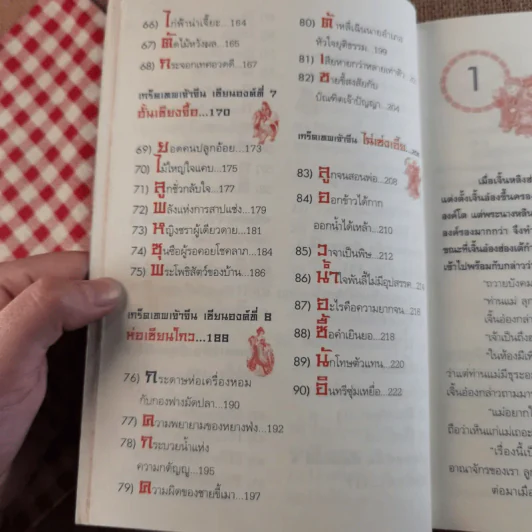 66) ไก่ฟ้าน่าเจี๊ยะ...164
67) ตัดไม้หวังผล...165
68) กระจอกเทศอวดดี...167
เกร็ดเทพเจ้าจีน เซียนองค์ที่ 7
ฮั่นเซียงจื้อ...170
69) ยอดคนปลูกอ้อย...173
70) ไม่ใหญ่ใจแคบ...175
71) ลูกชั่วกลับใจ...177
72) พลังแห่งการสาปแช่ง...179
73) หญิงชราผู้เดียวดาย...181
74) ซุนซือผู้รอคอยโชคลาภ...184
75) พระโพธิสัตว์ของบ้าน...186
เกร็ดเทพเจ้าจีน เซียนองค์ที่ 8
ห่อเซียนโกว...188
76) กระดาษห่อเครื่องหอม
กับกองฟางมัดปลา...190
77) ความพยายามของหยางฟง...192
78) กระบวยน้ำแห่ง
ความกตัญญู...195
79) ความผิดของชายขี้เมา...197
80) ต้าหลี่เฉินนายอำเภอ
หัวใจยุติธรรม...199
81) เสียหายกว่าหลายเท่าตัว
82) ชายขี้สงสัยกับ
บัณฑิตเจ้าปัญญา...204
เกร็ดเทพเจ้าจีน ไฉ่ซิงเอี๊ย...
83) ลูกจนสอนพ่อ...208
84) ออกข้าวได้กาก
ออกน้ำได้เหล้า...210
85) วาจาเป็นพิษ...212
86) น้ำใจพันลี้ไม่มีอุปสรรค
87) อะไรคือความยากจน
88) ซื้อคำเยินยอ...218
89) นักโทษตัวแทน...220
90) อินทรีซุ่มเหยื่อ...222
1
เมื่อเจิ้นหลิง
แต่งตั้งเจิ้นอ๋องขึ้นครอง
องค์โต แต่พระนางหลิน
องค์รองมากกว่า จึงทำ
ขณะที่เจิ้นอ๋องฮ่องเต้กำ
เข้าไปพร้อมกับกล่าวว่า
"ถวายบังคม
"ท่านแม่ ลูก
เจิ้นอ๋องกล่าว
"เจ้าเป็นถึง
"ในห้องมีเพียง
ว่าแต่ท่านแม่มีธุระอะ
เจิ้นอ๋องกล่าวถามมาร
"แม่อยากให้
ถือว่าเห็นแก่แม่เถอะ
"เรื่องนี้เป็น
อาณาจักรของเรา ลูก
ต่อมาเมื่อ